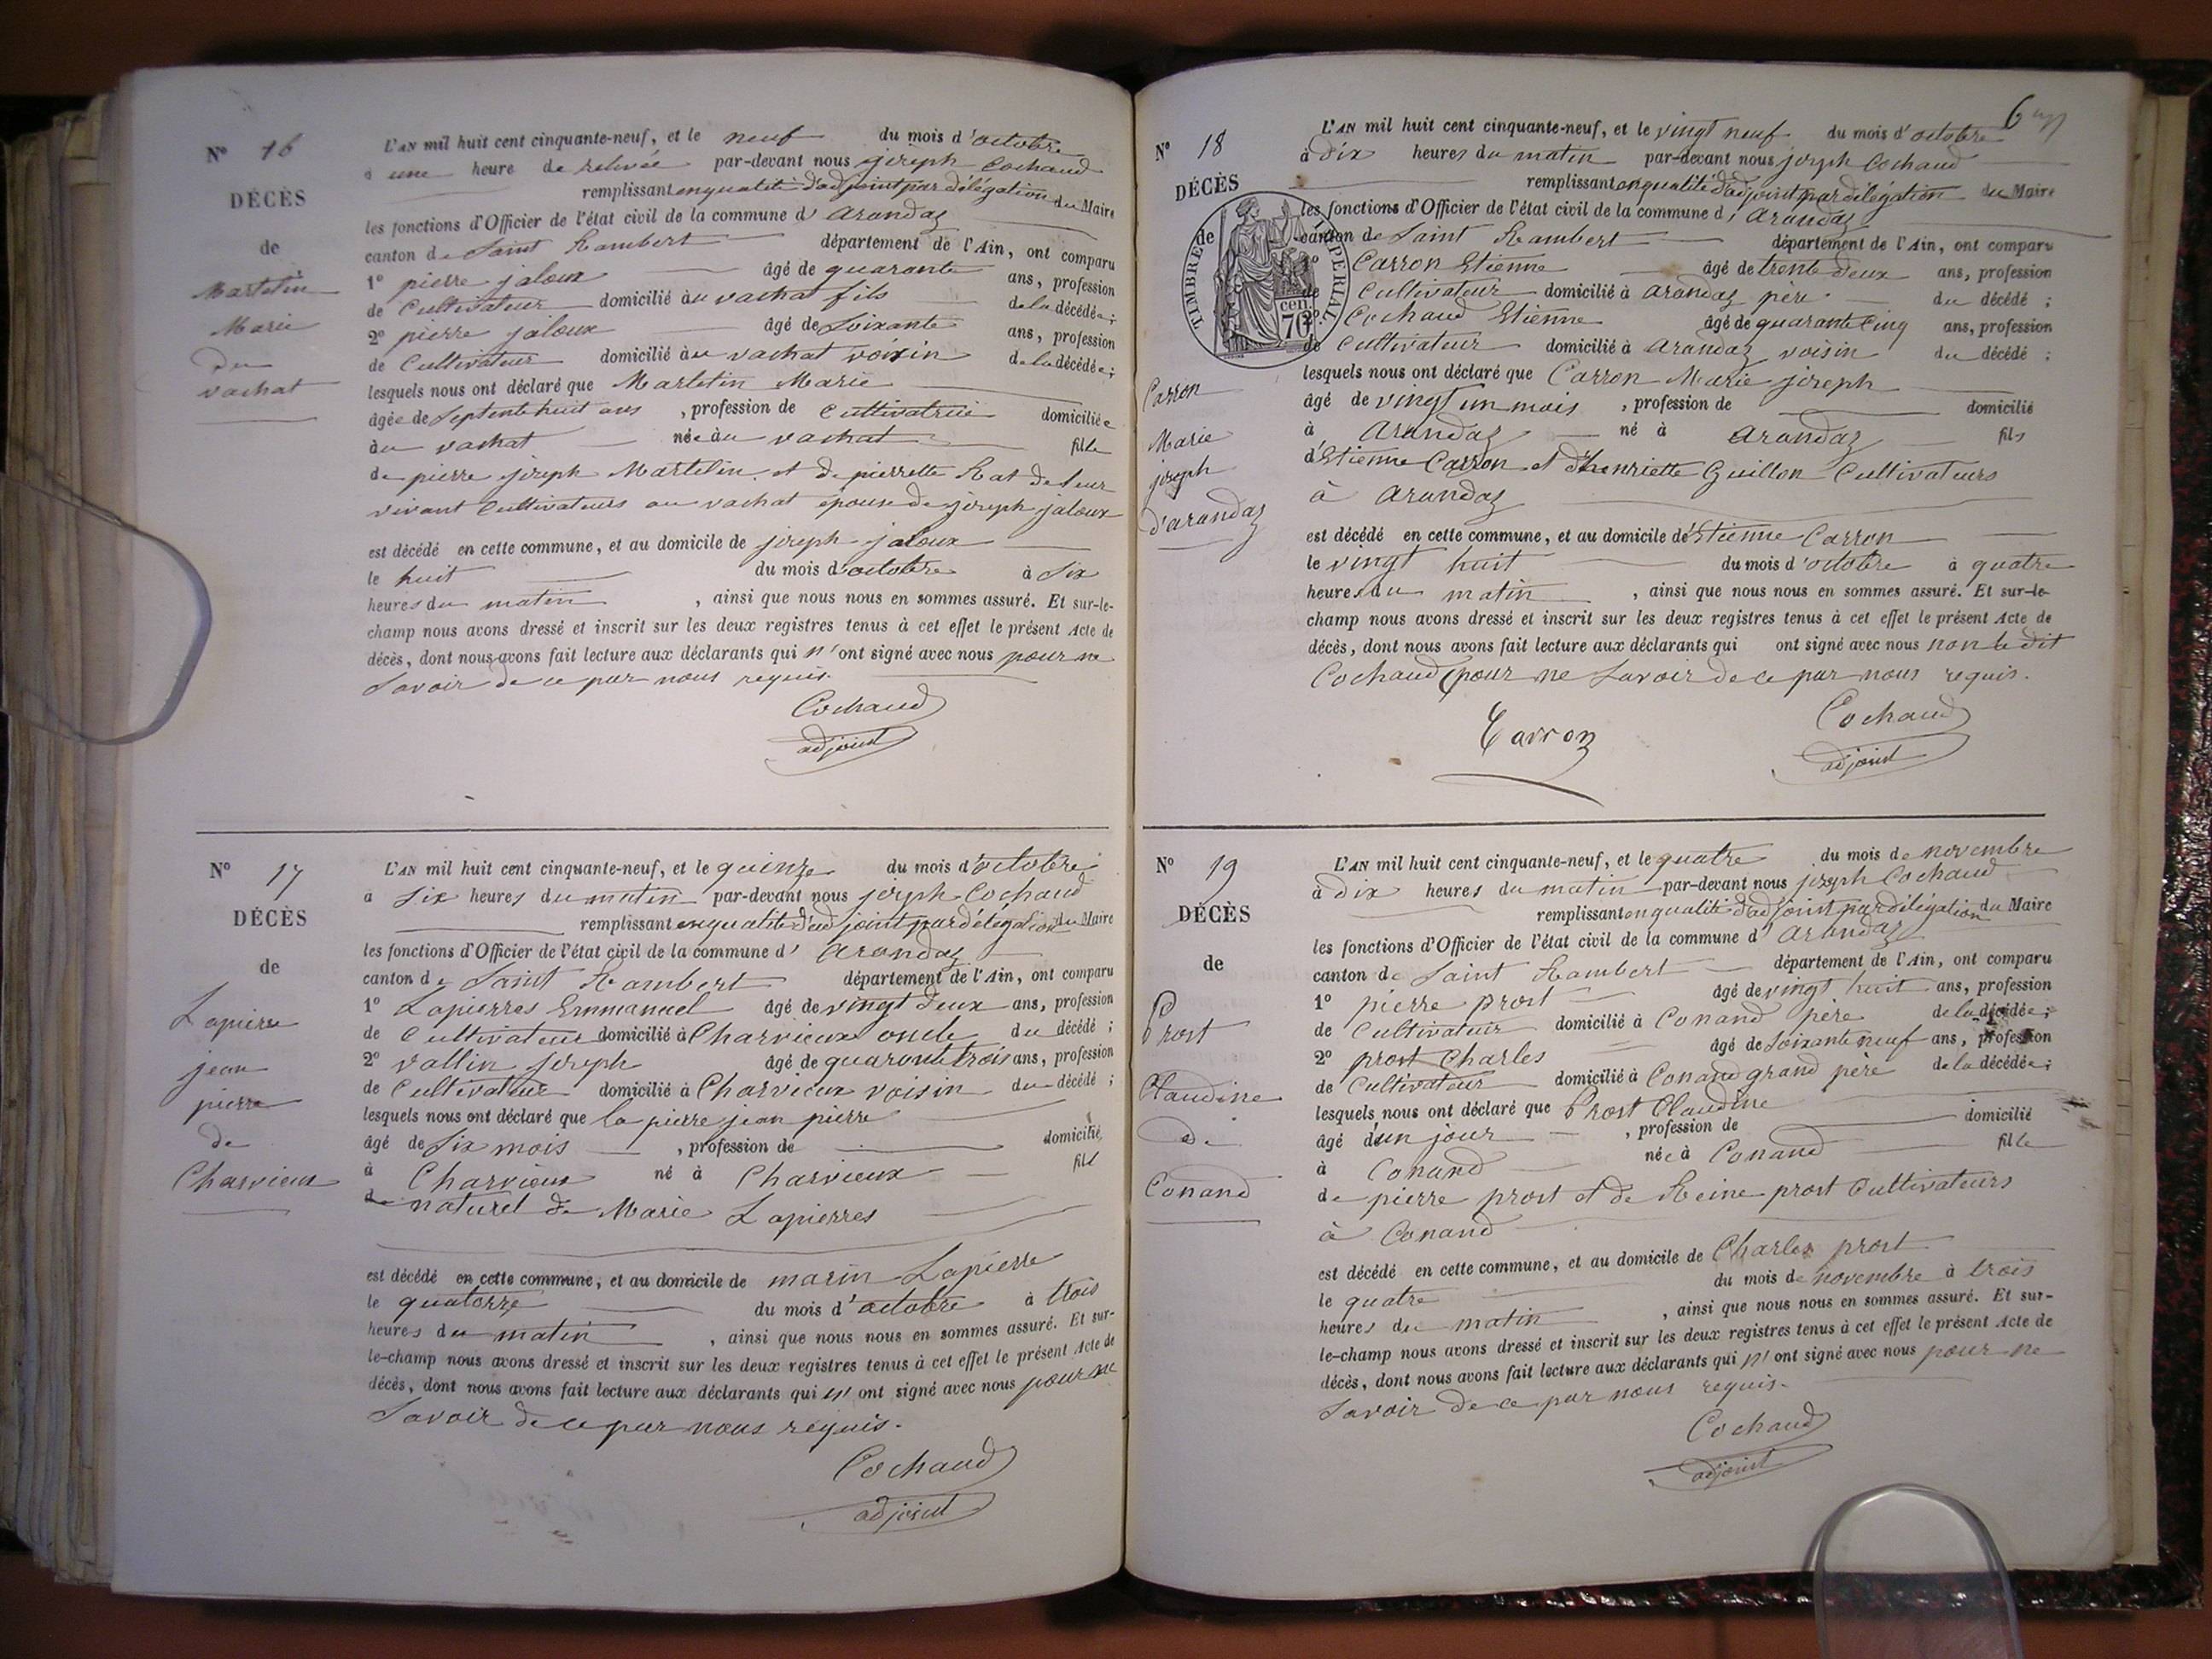 N° 16
DÉCÈS
de
Martelin
Marie
du
vachat
L'AN mil huit cent cinquante-neuf, et le neuf du mois d'octobre
à une heure de relevée par-devant nous joseph Cochaud
remplissant en qualité d'adjoint par délégation du Maire
les fonctions d'Officier de l'état civil de la commune d'arandaz
canton de Saint Rambert département de l'Ain, ont comparu
1° pierre jaloux âgé de quarante ans, profession
de Cultivateur domicilié au vachat fils de la décédée;
2° pierre jaloux âgé de Soixante ans, profession
de Cultivateur domicilié au vachat voisin de la décédée;
lesquels nous ont déclaré que Martelin Marie
âgée de Septente huit ans, profession de Cultivatrice domiciliée
au vachat née au vachat fille
de pierre joseph Martelin et de pierrette Rat de leur
vivant Cultivateurs au vachat épouse de joseph jaloux
est décédé en cette commune, et au domicile de joseph jaloux
le huit du mois d'octobre à Six
heures du matin, ainsi que nous nous en sommes assuré. Et sur-le-
champ nous avons dressé et inscrit sur les deux registres tenus à cet effet le présent Acte de
décès, dont nous avons fait lecture aux déclarants qui n'ont signé avec nous pour ne
Savoir de ce par nous requis.
Cochaud
adjoint
N° 17
DÉCÈS
de
Lapierre
jean
pierre
de
Charvieux
L'AN mil huit cent cinquante-neuf, et le quinze du mois d'octobre
à Six heures du matin par-devant nous joseph Cochaud
remplissant en qualité d'adjoint par délégation du Maire
les fonctions d'Officier de l'état civil de la commune d'arandaz
canton de Saint Rambert département de l'Ain, ont comparu
1° Lapierres Emmanuel âgé de vingt deux ans, profession
de Cultivateur domicilié à Charvieux oncle du décédé;
2° vallin joseph âgé de quarante trois ans, profession
de Cultivateur domicilié à Charvieux voisin du décédé;
lesquels nous ont déclaré que la pierre jean pierre
âgé de Six mois, profession de domicilié
à Charvieux né à Charvieux fils
de naturel de Marie Lapierres
est décédé en cette commune, et au domicile de marin Lapierre
le quatorze du mois d'octobre à trois
heures du matin, ainsi que nous nous en sommes assuré. Et sur-
le-champ nous avons dressé et inscrit sur les deux registres tenus à cet effet le présent Acte de
décès, dont nous avons fait lecture aux déclarants qui n'ont signé avec nous pour ne
Savoir de ce par nous requis.
Cochaud
adjoint
6
N° 18
DÉCÈS
de
TIMBRE IMPERIAL
70 cen.
Carron
Marie
joseph
d'arandaz
L'AN mil huit cent cinquante-neuf, et le vingt neuf du mois d'octobre
à dix heures du matin par-devant nous joseph Cochaud
remplissant en qualité d'adjoint par délégation du Maire
les fonctions d'Officier de l'état civil de la commune d'arandaz
canton de Saint Rambert département de l'Ain, ont comparu
1° Carron Etienne âgé de trente deux ans, profession
de Cultivateur domicilié à arandaz père du décédé;
2° Cochaud Etienne âgé de quarante Cinq ans, profession
de Cultivateur domicilié à arandaz voisin du décédé;
lesquels nous ont déclaré que Carron Marie joseph
âgé de vingt un mois, profession de domicilié
à arandaz né à arandaz fils
d'Etienne Carron et d'henriette Guillon Cultivateurs
à arandaz
est décédé en cette commune, et au domicile d'Etienne Carron
le vingt huit du mois d'octobre à quatre
heures du matin, ainsi que nous nous en sommes assuré. Et sur-le-
champ nous avons dressé et inscrit sur les deux registres tenus à cet effet le présent Acte de
décès, dont nous avons fait lecture aux déclarants qui ont signé avec nous non le dit
Cochaud pour ne Savoir de ce par nous requis.
Carron
Cochaud
adjoint
N° 19
DÉCÈS
de
Prost
Claudine
de
Conand
L'AN mil huit cent cinquante-neuf, et le quatre du mois de novembre
à dix heures du matin par-devant nous joseph Cochaud
remplissant en qualité d'adjoint par délégation du Maire
les fonctions d'Officier de l'état civil de la commune d'arandaz
canton de Saint Rambert département de l'Ain, ont comparu
1° pierre prost âgé de vingt huit ans, profession
de Cultivateur domicilié à Conand père de la décédée;
2° prost Charles âgé de Soixante neuf ans, profession
de Cultivateur domicilié à Conand grand père de la décédée;
lesquels nous ont déclaré que Prost Claudine
âgé d'un jour, profession de domicilié
à Conand née à Conand fille
de pierre prost et de Reine prost Cultivateurs
à Conand
est décédé en cette commune, et au domicile de Charles prost
le quatre du mois de novembre à trois
heures du matin, ainsi que nous nous en sommes assuré. Et sur-
le-champ nous avons dressé et inscrit sur les deux registres tenus à cet effet le présent Acte de
décès, dont nous avons fait lecture aux déclarants qui n'ont signé avec nous pour ne
Savoir de ce par nous requis.
Cochaud
adjoint